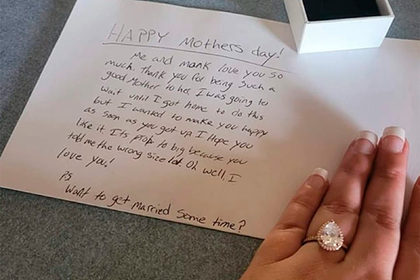 HAPPY Mothers day!
Me and monk love you so
much. Thank you for being such a
good Mother to her. I was going to
wait until I got home to do this
but I wanted to make you happy
as soon as you get up. I Hope you
like it Its prob to big because you
told me the wrong size lol. Oh well I
love you!
Ps
Want to get married some time?